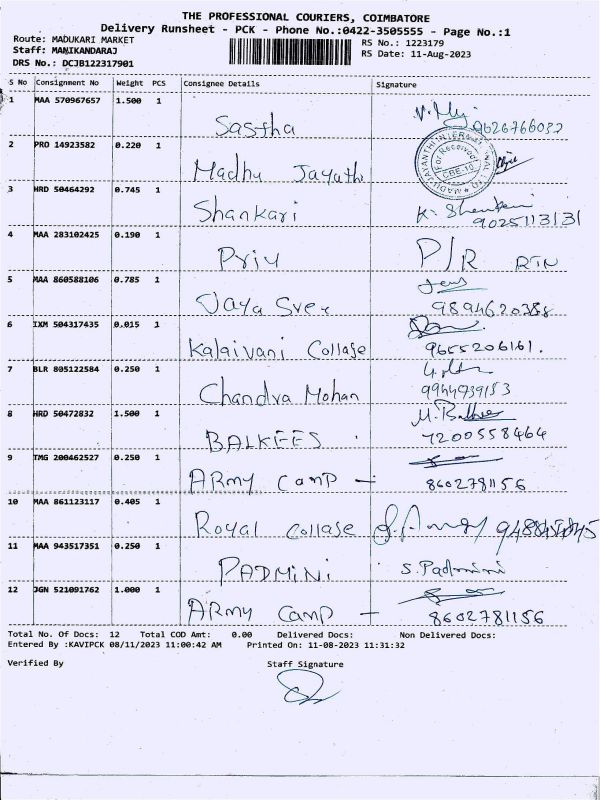 THE PROFESSIONAL COURIERS, COIMBATORE
Delivery Runsheet - PCK - Phone No.:0422-3505555 - Page No.:1
Route: MADUKARI MARKET RS No.: 1223179
Staff: MANIKANDARAJ RS Date: 11-Aug-2023
DRS No.: DCJB122317901
S No Consignment No Weight PCS Consignee Details Signature
1 MAA 570967657 1.500 1 Sastha 9626766032
2 PRO 14923582 0.220 1 Madhu Jayathi For Received CBE-10
3 HRD 50464292 0.745 1 Shankari K. 9025113131
4 MAA 283102425 0.190 1 Priy P/R RTN
5 MAA 860588106 0.785 1 Jaya Sree 9894620388
6 IXM 504317435 0.015 1 Kalaivani Collage 9655206161.
7 BLR 805122584 0.250 1 Chandra Mohan 9944939153
8 HRD 50472832 1.500 1 BALKEES. 7200558464
9 TMG 200462527 0.250 1 ARmy Camp - 8602781156
10 MAA 861123117 0.405 1 Royal Collage
11 MAA 943517351 0.250 1 PADMINi S. Padmini
12 JGN 521091762 1.000 1 ARmy Camp - 8602781156
Total No. Of Docs: 12 Total COD Amt: 0.00 Delivered Docs: Non Delivered Docs:
Entered By :KAVIPCK 08/11/2023 11:00:42 AM Printed On: 11-08-2023 11:31:32
Verified By Staff Signature